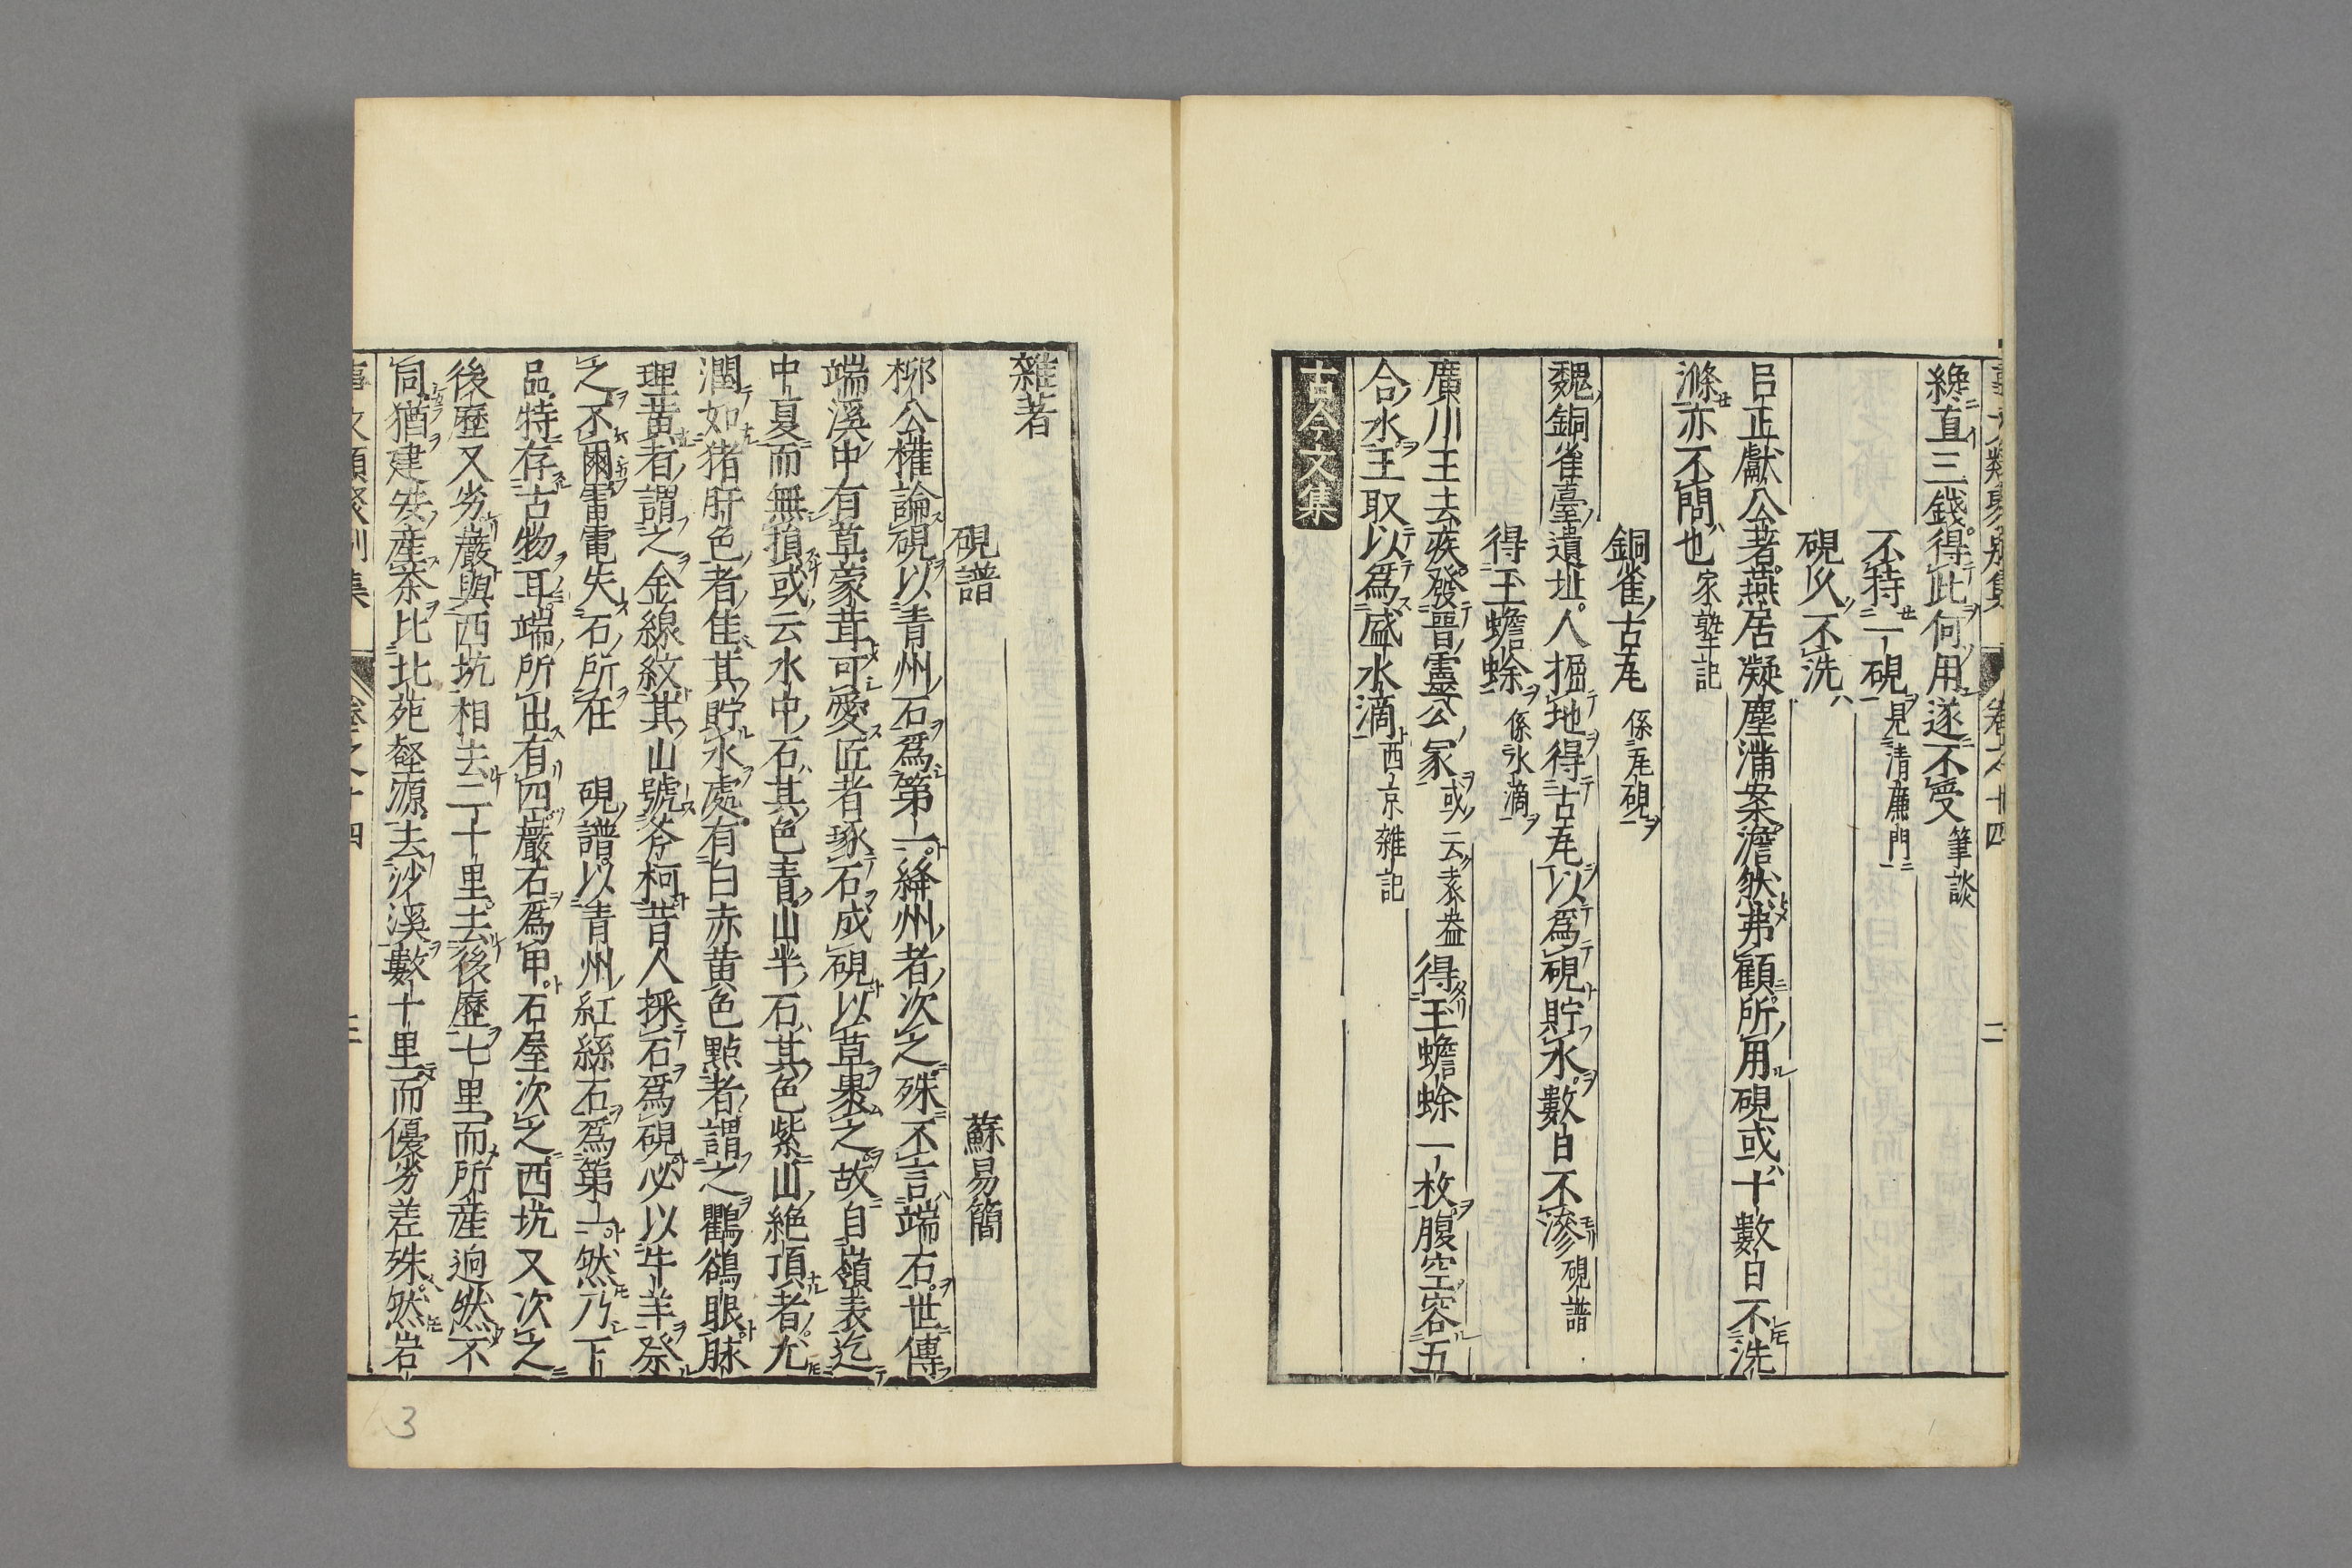 纔直三錢得此何用遂不受 筆談
不持一硯 見清廉門
硯久不洗
呂正獻公著燕居凝塵滿案澹然弗顧所用硯或十數日不洗
滌亦不問也 家塾記
銅雀古瓦 係瓦硯
魏銅雀臺遺址人掘地得古瓦以爲硯貯水數日不滲 硯譜
得玉蟾蜍 係水滴
廣川王去疾發晉靈公冢 或云袁益 得玉蟾蜍一枚腹空容五
合水王取以爲盛水滴 西京雜記
古今文集
雜著
硯譜 蘇易簡
柳公權論硯以青州石爲第一絳州者次之殊不言端石世傳
端溪中有草蒙茸可愛匠者琢石成硯以草裹之故自嶺表迄
中夏而無損或云水中石其色青山半石其色紫山絶頂者尤
潤如猪肝色者佳其貯水處有白赤黄色點者謂之鸜鵒眼脉
理黄者謂之金線紋其山號斧柯昔人採石爲硯必以牛羊祭
之不爾雷電失石所在 硯譜以青州紅絲石爲第一然乃下
品特存古物耳端所出有四巖石爲甲石屋次之西坑又次之
後歷又劣巖與西坑相去二十里去後歷七里而所産逈然不
同猶建安産茶比北苑壑源去沙溪數十里而優劣差殊然岩